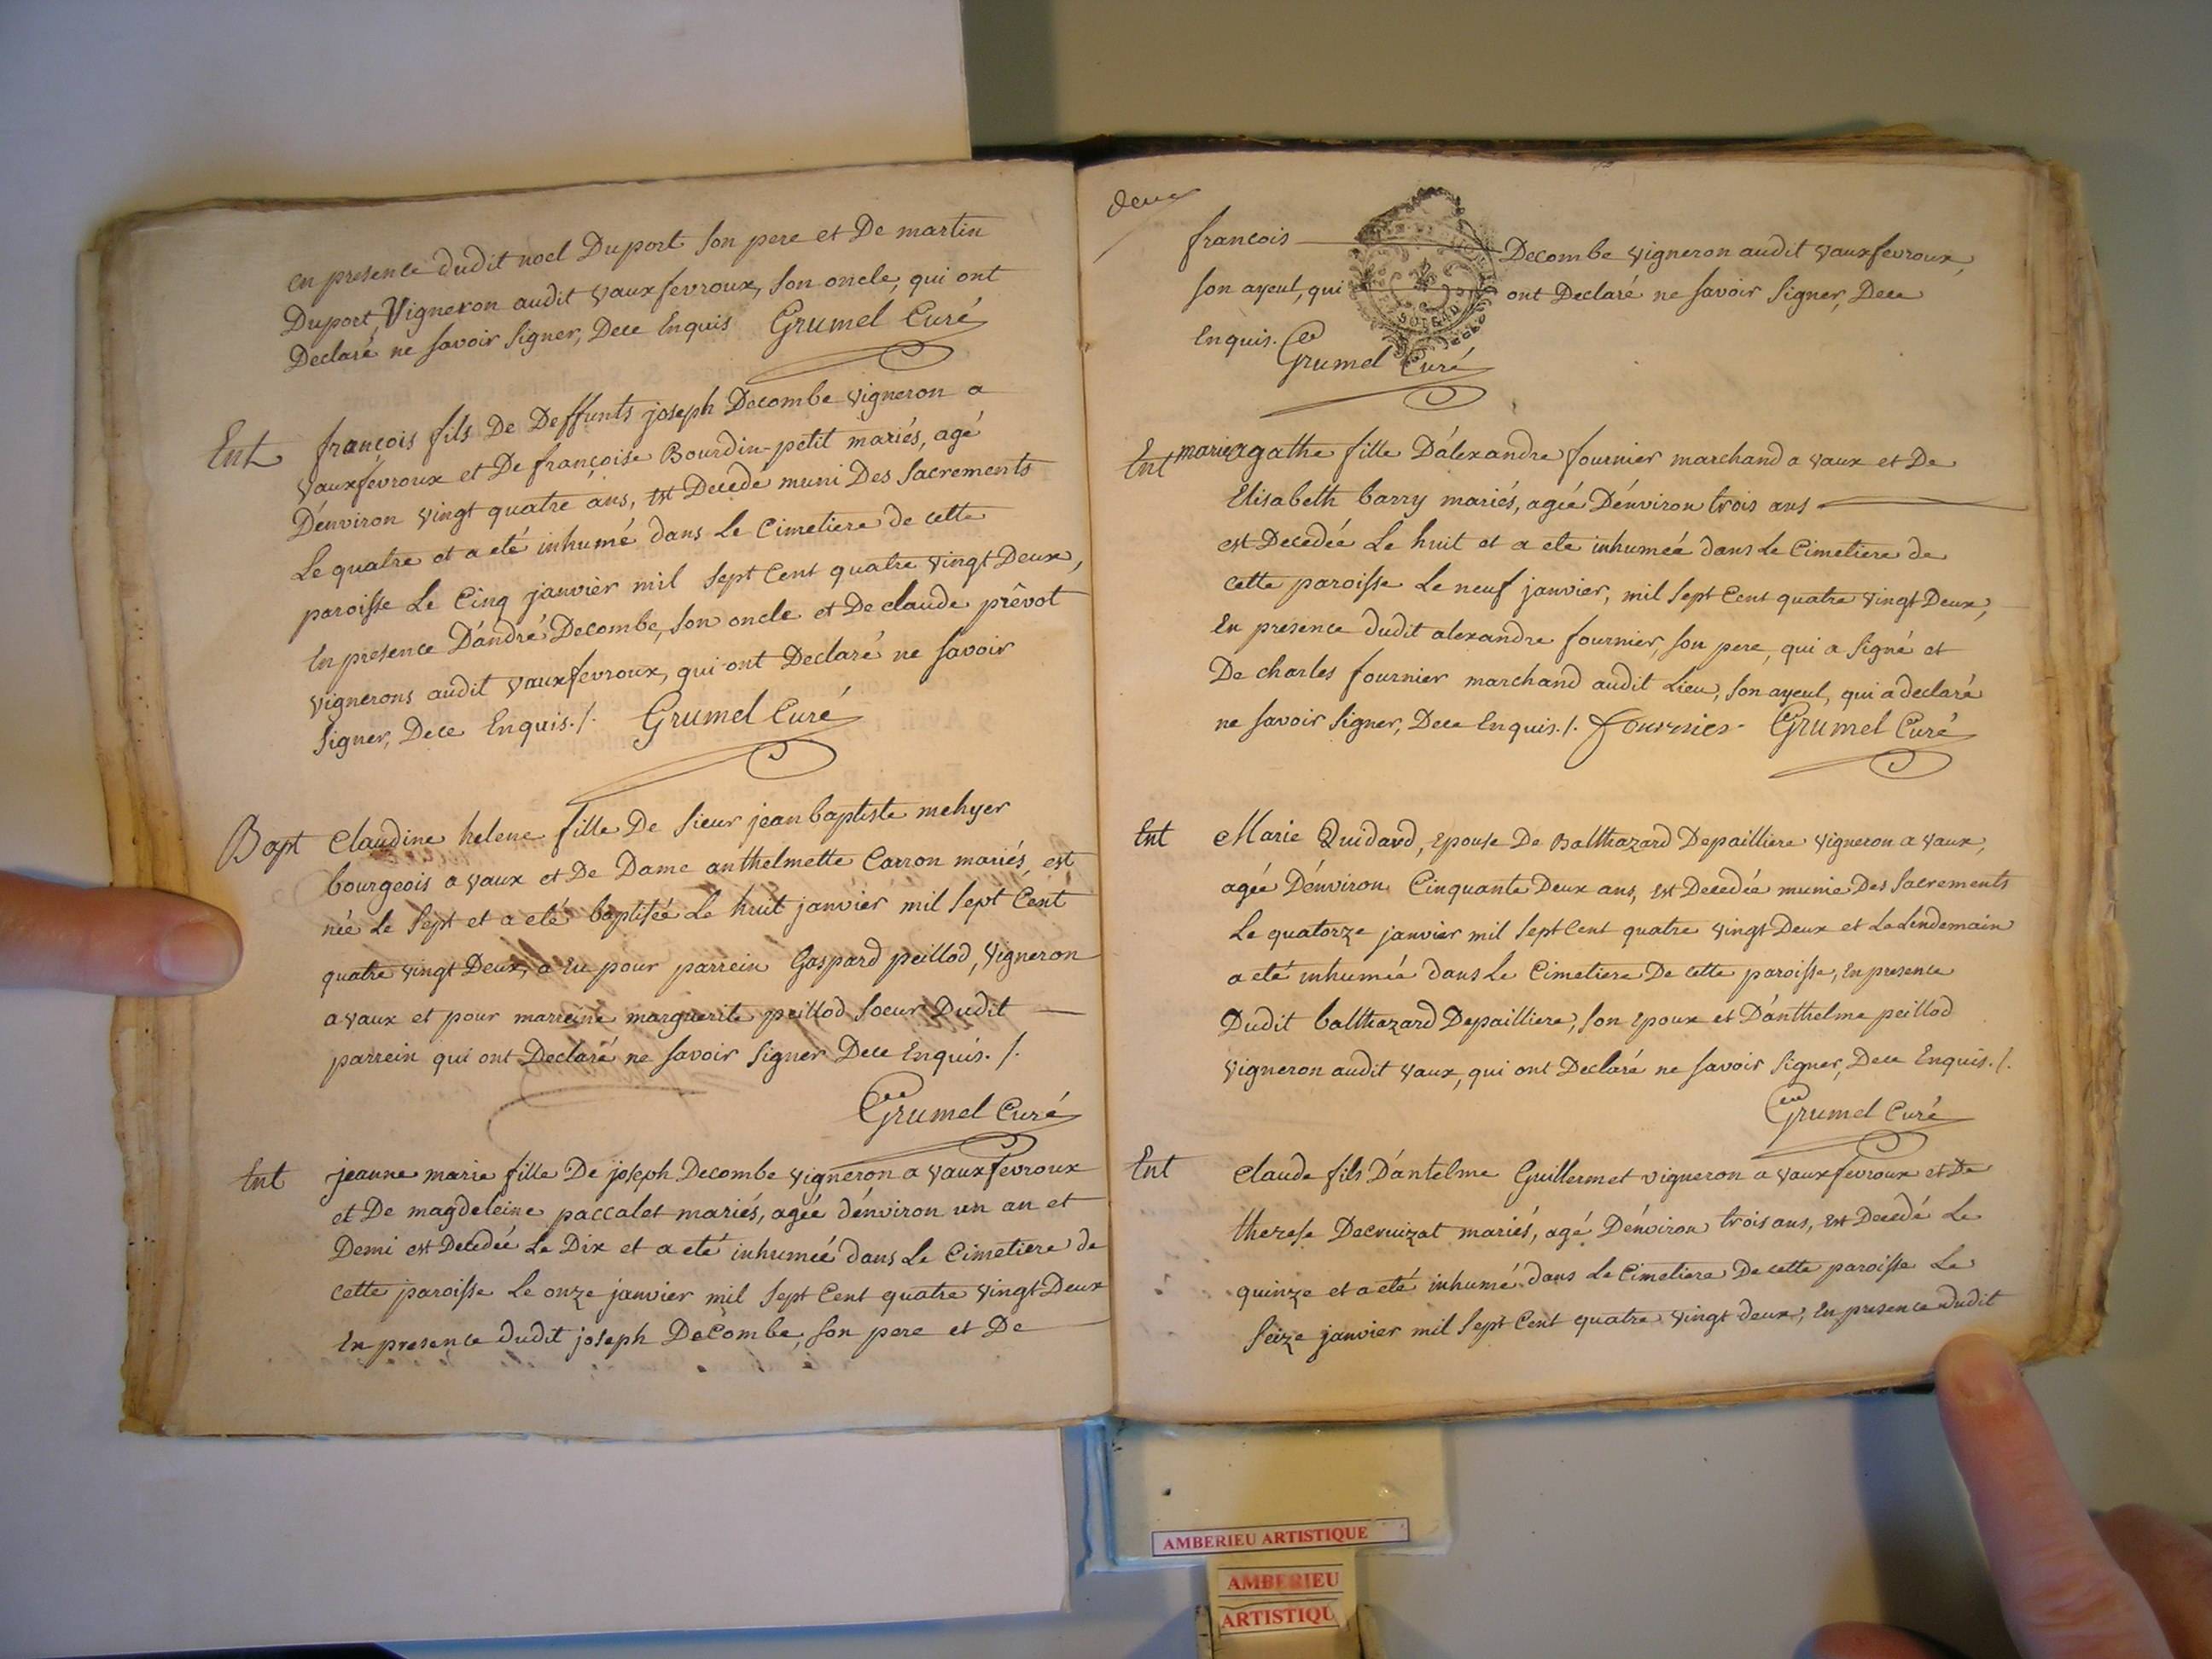 en presence dudit noel Duport son pere et De martin
Duport, Vigneron audit vauxfevroux, son oncle, qui ont
Declaré ne savoir signer, Dece Enquis Grumel Curé
Ent françois fils De Deffunts joseph Decombe vigneron a
vauxfevroux et De françoise Bourdin-petit mariés, agé
D'environ vingt quatre ans, est Decedé muni Des sacrements
Le quatre et a eté inhumé dans Le Cimetiere de cette
paroisse Le Cinq janvier mil sept Cent quatre vingt Deux,
En presence D'andré Decombe, son oncle et De claude prêvot
vignerons audit vauxfevroux, qui ont Declaré ne savoir
signer, Dece Enquis./. Grumel Curé
Bapt Claudine helene fille De sieur jean baptiste mehyer
bourgeois a vaux et De Dame anthelmette Carron mariés, est
née Le sept et a eté baptisée Le huit janvier mil sept Cent
quatre vingt Deux, a Eu pour parrein Gaspard peillod, vigneron
a vaux et pour marreine marguerite peillod soeur Dudit
parrein qui ont Declaré ne savoir signer Dece Enquis./.
Grumel Curé
Ent jeanne marie fille De joseph Decombe vigneron a vauxfevroux
et De magdeleine paccalet mariés, agée d'environ un an et
Demi est Decedée Le Dix et a eté inhumée dans Le Cimetiere de
cette paroisse Le onze janvier mil sept Cent quatre vingt Deux
En presence dudit joseph DeCombe, son pere et De
deux
francois Decombe vigneron audit vauxfevroux,
son ayeul, qui ont Declaré ne savoir signer, Dece
Enquis.
Grumel Curé
Ent marie agathe fille D'alexandre fournier marchand a vaux et De
Elisabeth barry mariés, agée D'environ trois ans
est Decedée Le huit et a ete inhumée dans Le Cimetiere de
cette paroisse Le neuf janvier, mil sept Cent quatre vingt Deux,
En presence dudit alexandre fournier, son pere, qui a signé et
De charles fournier marchand audit Lieu, son ayeul, qui a declaré
ne savoir signer, Dece Enquis./. fournier Grumel Curé
Ent Marie Quidard, Epouse De Balthazard Depailliere vigneron a vaux,
agée D'environ Cinquante Deux ans, est Decedée munie Des sacrements
Le quatorze janvier mil sept Cent quatre vingt Deux et Le Lendemain
a eté inhumée dans Le Cimetiere De cette paroisse, En presence
Dudit balthazard Depailliere, son Epoux et D'anthelme peillod
vigneron audit vaux, qui ont Declaré ne savoir signer, Dece Enquis./.
Grumel Curé
Ent Claude fils D'antelme Guillermet vigneron a vauxfevroux et De
therese Decruizat mariés, agé D'environ trois ans, est Decedé Le
quinze et a eté inhumé dans Le Cimetiere De cette paroisse Le
seize janvier mil sept Cent quatre vingt deux, En presence dudit
AMBERIEU ARTISTIQUE
AMBERIEU
ARTISTIQU